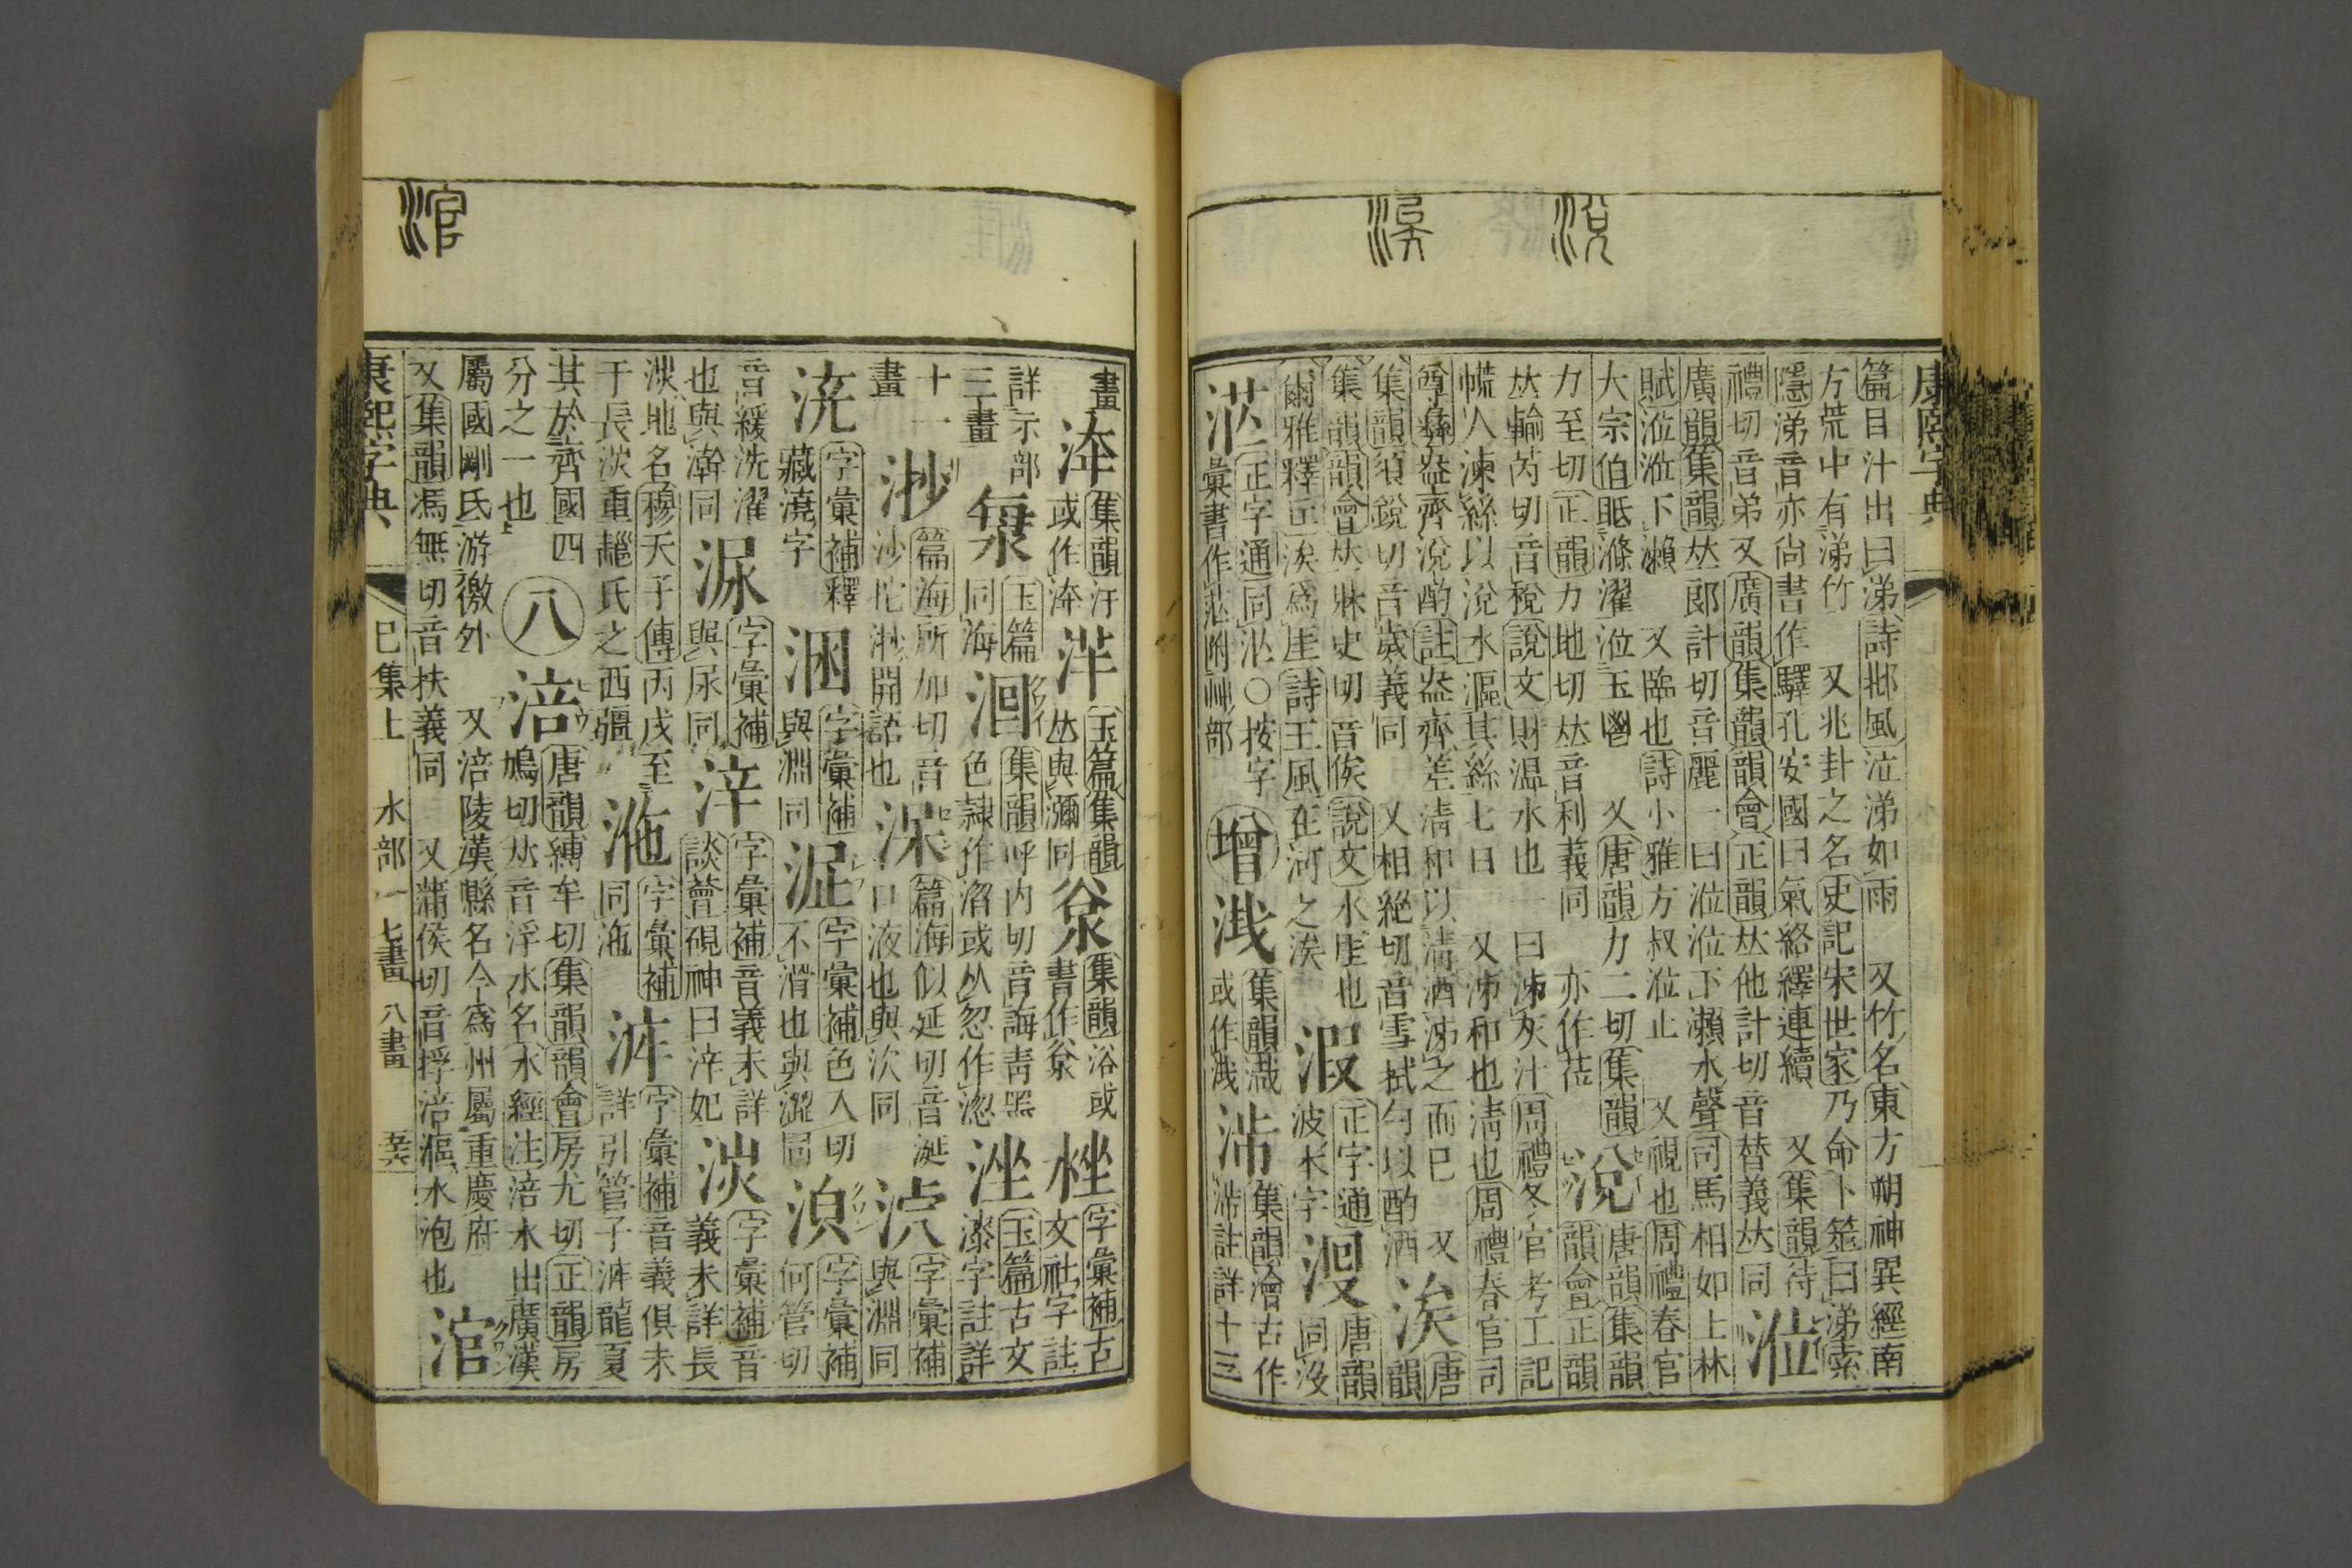 涚
涘
康熙字典
篇目汁出曰涕詩邶風泣涕如雨 又竹名東方朔神異經南
方荒中有涕竹 又兆卦之名史記宋世家乃命卜筮曰涕索
隱涕音亦尚書作驛孔安國曰氣絡繹連續 又集韻待
禮切音弟又廣韻集韻韻會正韻𠀤他計切音替義𠀤同 涖
廣韻集韻𠀤郞計切音麗一曰涖涖下瀨水聲司馬相如上林
賦涖涖下瀨 又臨也詩小雅方叔涖止 又視也周禮春官
大宗伯眂滌濯涖玉鬯 又唐韻力二切集韻
力至切正韻力地切𠀤音利義同 亦作莅 涚 唐韻集韻韻會正韻
𠀤輸芮切音稅說文財温水也一曰涗灰汁周禮冬官考工記
㡆人湅絲以涚水漚其絲七日 又涗和也淸也周禮春官司
尊彝盎齊涚酌註盎齊差淸和以淸酒涗之而已 又
集韻須銳切音歲義同 又相絕切音雪拭勺以酌酒 涘 唐韻
集韻韻會𠀤牀史切音俟說文水厓也
爾雅釋丘涘爲厓詩王風在河之涘 正字通波本字 唐韻同沒
正字通同 按字彙書作 附艸部 增 集韻濈或作 集韻濟古作 註詳十三
畫 集韻汙或作洿 玉篇集韻𠀤與瀰同 集韻浴或書作 字彙補古文社字註
詳示部三畫 玉篇同海 洄 集韻呼内切音誨靑黑色隷作淴或从忽作淴 玉篇古文漆字註詳
十一畫 篇海所加切音沙沱 開語也 篇海似延切音涎口液也與次同 字彙補與淵同
洗 字彙補釋藏澆字 字彙補與淵同 字彙補色入切不滑也與澀同 字彙補何管切
音緩洗濯也與澣同 字彙補與尿同 字彙補音義未詳談薈硯神曰淬妃 字彙補音義未詳長
淡地名穆天子傳丙戌至于長淡重䣝氏之西疆 字彙補同湤 字彙補音義俱未詳引管子 龍夏
其於齊國四分之一也 八 涪 唐韻縛牟切集韻韻會房尤切正韻房鳩切𠀤音浮水名水經注涪水出廣漢
屬國剛氏游徼外 又涪陵漢縣名今爲州屬重慶府
又集韻馮無切音扶義同 又蒲侯切音抙涪漚水泡也 涫
康熙字典 巳集上 水部 七畫 八畫
涫